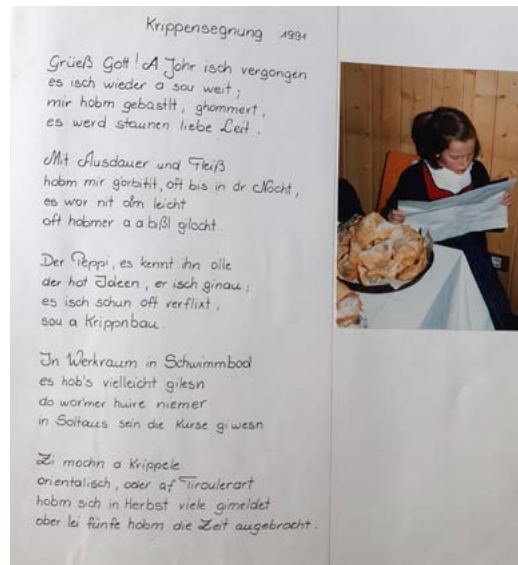 Krippensegnung 1991
Grüeß Gott! A Johr isch vergongen
es isch wieder a sou weit;
mir hobm gebastlt, ghommert,
es werd staunen liebe Leit.
Mit Ausdauer und Fleiß
hobm mir gorbitit, oft bis in dr Nocht,
es wor nit olm leicht
oft hobmer a a bißl gilocht.
Der Peppi, es kennt ihn olle
der hot Ideen, er isch ginau;
es isch schun oft verflixt,
sou a Krippnbau.
In Werkraum in Schwimmbod
es hob's vielleicht gilesn
do wormer huire niemer
in Soltaus sein die Kurse giwesn
Zi mochn a Krippele
orientalisch, oder af Tiroulerart
hobm sich in Herbst viele gimeldet
ober lei fünfe hobm die Zeit augebrocht.